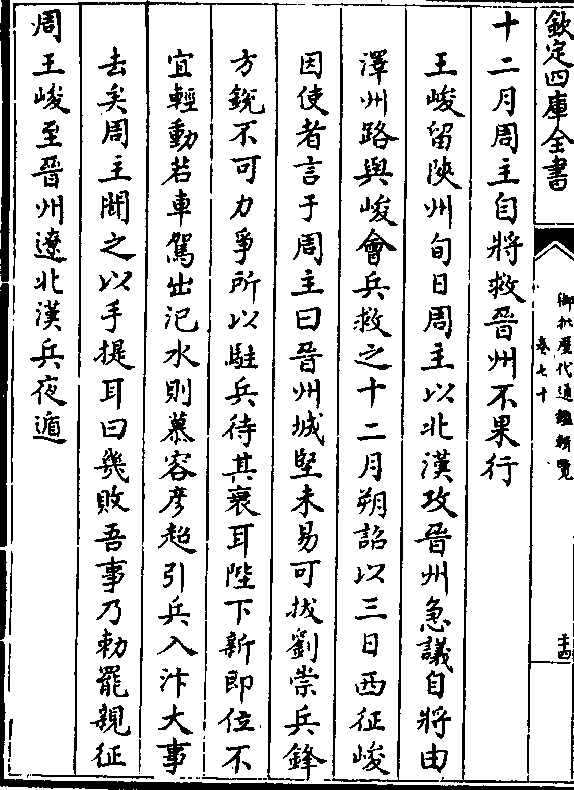 欽定四庫全書
御批歷代通鑑輯覽
卷七十
十二月周主自將救晉州不果行
王峻留陜州旬日周主以北漢攻晉州急議自將由
澤州路與峻會兵救之十二月朔詔以三日西征峻
因使者言于周主曰晉州城堅未易可拔劉崇兵鋒
方鋭不可力爭所以駐兵待其衰耳陛下新即位不
宜輕動若車駕出汜水則慕容彦超引兵入汴大事
去矣周主聞之以手提耳曰幾敗吾事乃勅罷親征
周王峻至晉州遼北漢兵夜遁